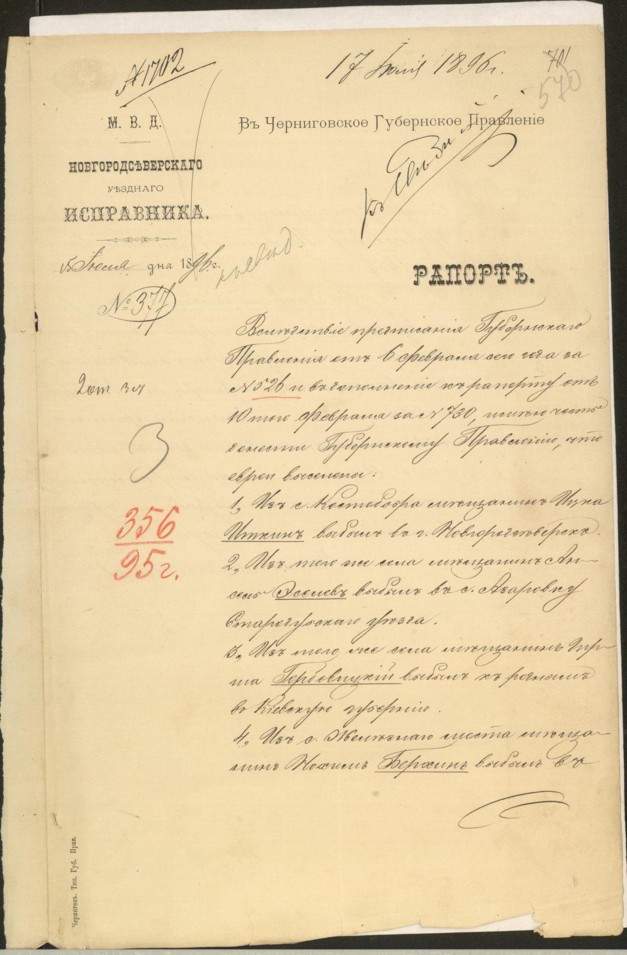 № 1702
17 Июля 1896 г.
701
570
М. В. Д.
НОВГОРОДСѢВЕРСКАГО
УѢЗДНАГО
ИСПРАВНИКА.
Въ Черниговское Губернское Правленіе
15 Іюля дня 1896 г.
№ 377
РАПОРТЪ.
Вслѣдствіе предписанія Губернскаго
Правленія отъ 6 Февраля сего года за
№ 526 и въ дополненіе къ рапорту отъ
10 того Февраля за № 730, имѣю честь
донести Губернскому Правленію, что
евреи выселены:
3
356
95 г.
1, Изъ с. Костобобра мѣщанинъ Ицка
Иткинъ выбылъ въ г. Новгородсѣверскъ.
2, Изъ того же села мѣщанинъ Ан-
выбылъ въ с. Азаровку
Стародубскаго уѣзда.
3, Изъ того же села мѣщанинъ
выбылъ къ роднымъ
въ Кіевскую губернію.
4, Изъ с. моста мѣща-
нинъ выбылъ въ
Черниговъ. Тип. Губ. Прав.